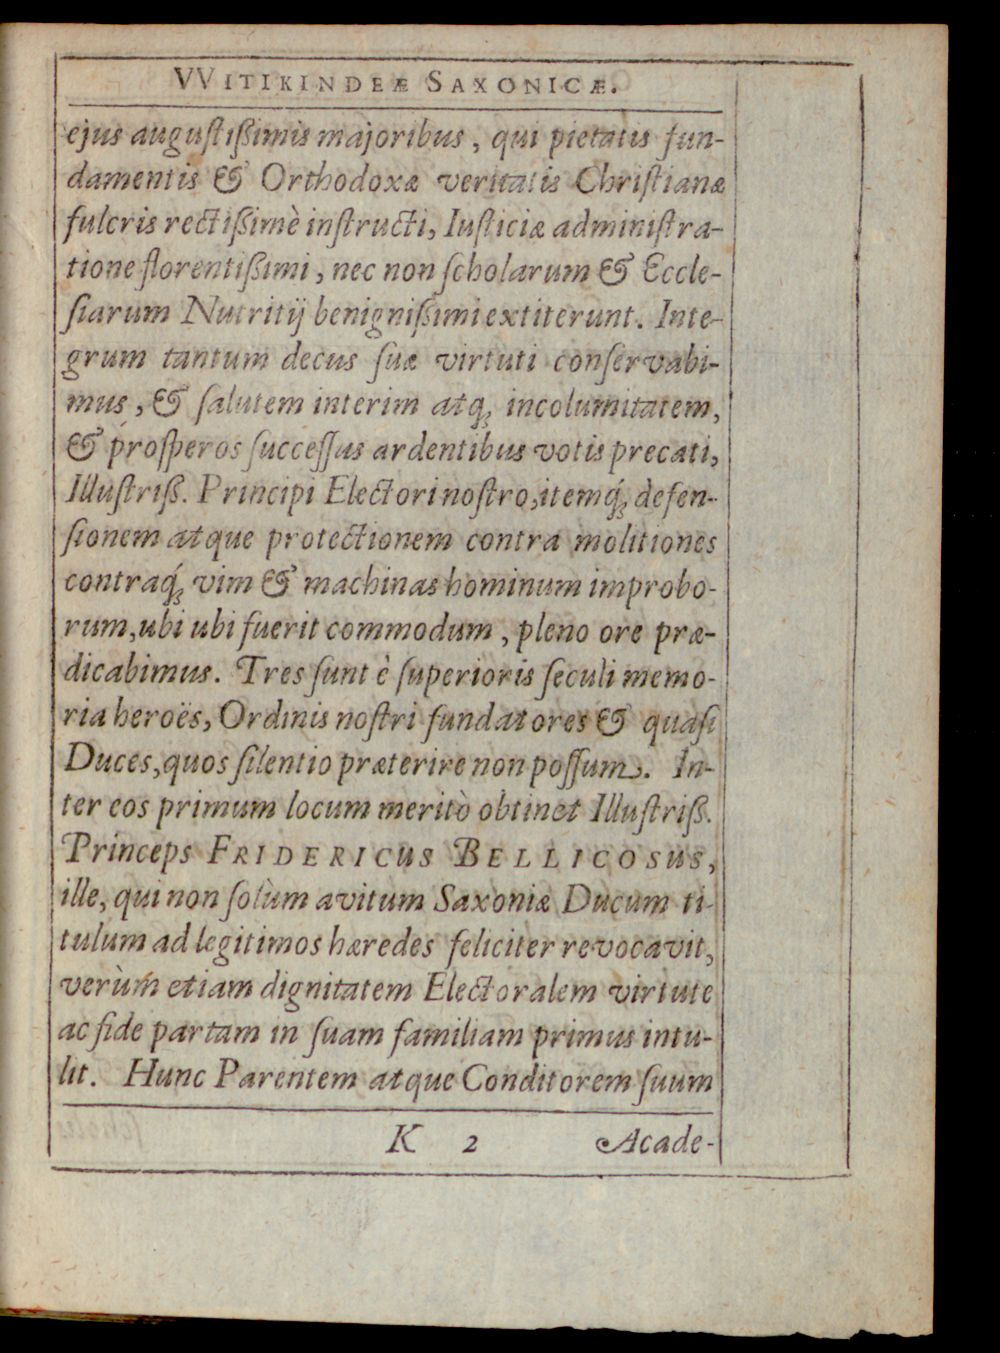 VVITIKINDEÆ SAXONICÆ.
ejus auguſtißimis majoribus, qui pietatis fun-
damentis & Orthodoxæ veritatis Chriſtianæ
fulcris rectißimè inſtructi, Iuſticiæ adminiſtra-
tione florentißimi, nec non ſcholarum & Eccle-
ſiarum Nutritij benignißimi extiterunt. Inte-
grum tantum decus ſuæ virtuti conſervabi-
mus, & ſalutem interim atq́; incolumitatem,
& proſperos ſucceſſus ardentibus votis precati,
Illuſtriß. Principi Electori noſtro, itemq́; defen-
ſionem atque protectionem contra molitiones
contraq́; vim & machinas hominum improbo-
rum, ubi ubi fuerit commodum, pleno ore præ-
dicabimus. Tres ſunt è ſuperioris ſeculi memo-
ria heroës, Ordinis noſtri fundatores & quaſi
Duces, quos ſilentio præterire non poſſum. In-
ter eos primum locum meritò obtinet Illuſtriß.
Princeps FRIDERICUS BELLICOSUS,
ille, qui non ſolùm avitum Saxoniæ Ducum ti-
tulum ad legitimos hæredes feliciter revocavit,
verùm etiam dignitatem Electoralem virtute
ac fide partam in ſuam familiam primus intu-
lit. Hunc Parentem atque Conditorem ſuum
K 2 Acade-